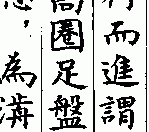 而進謂
高圈足盤
，為溝